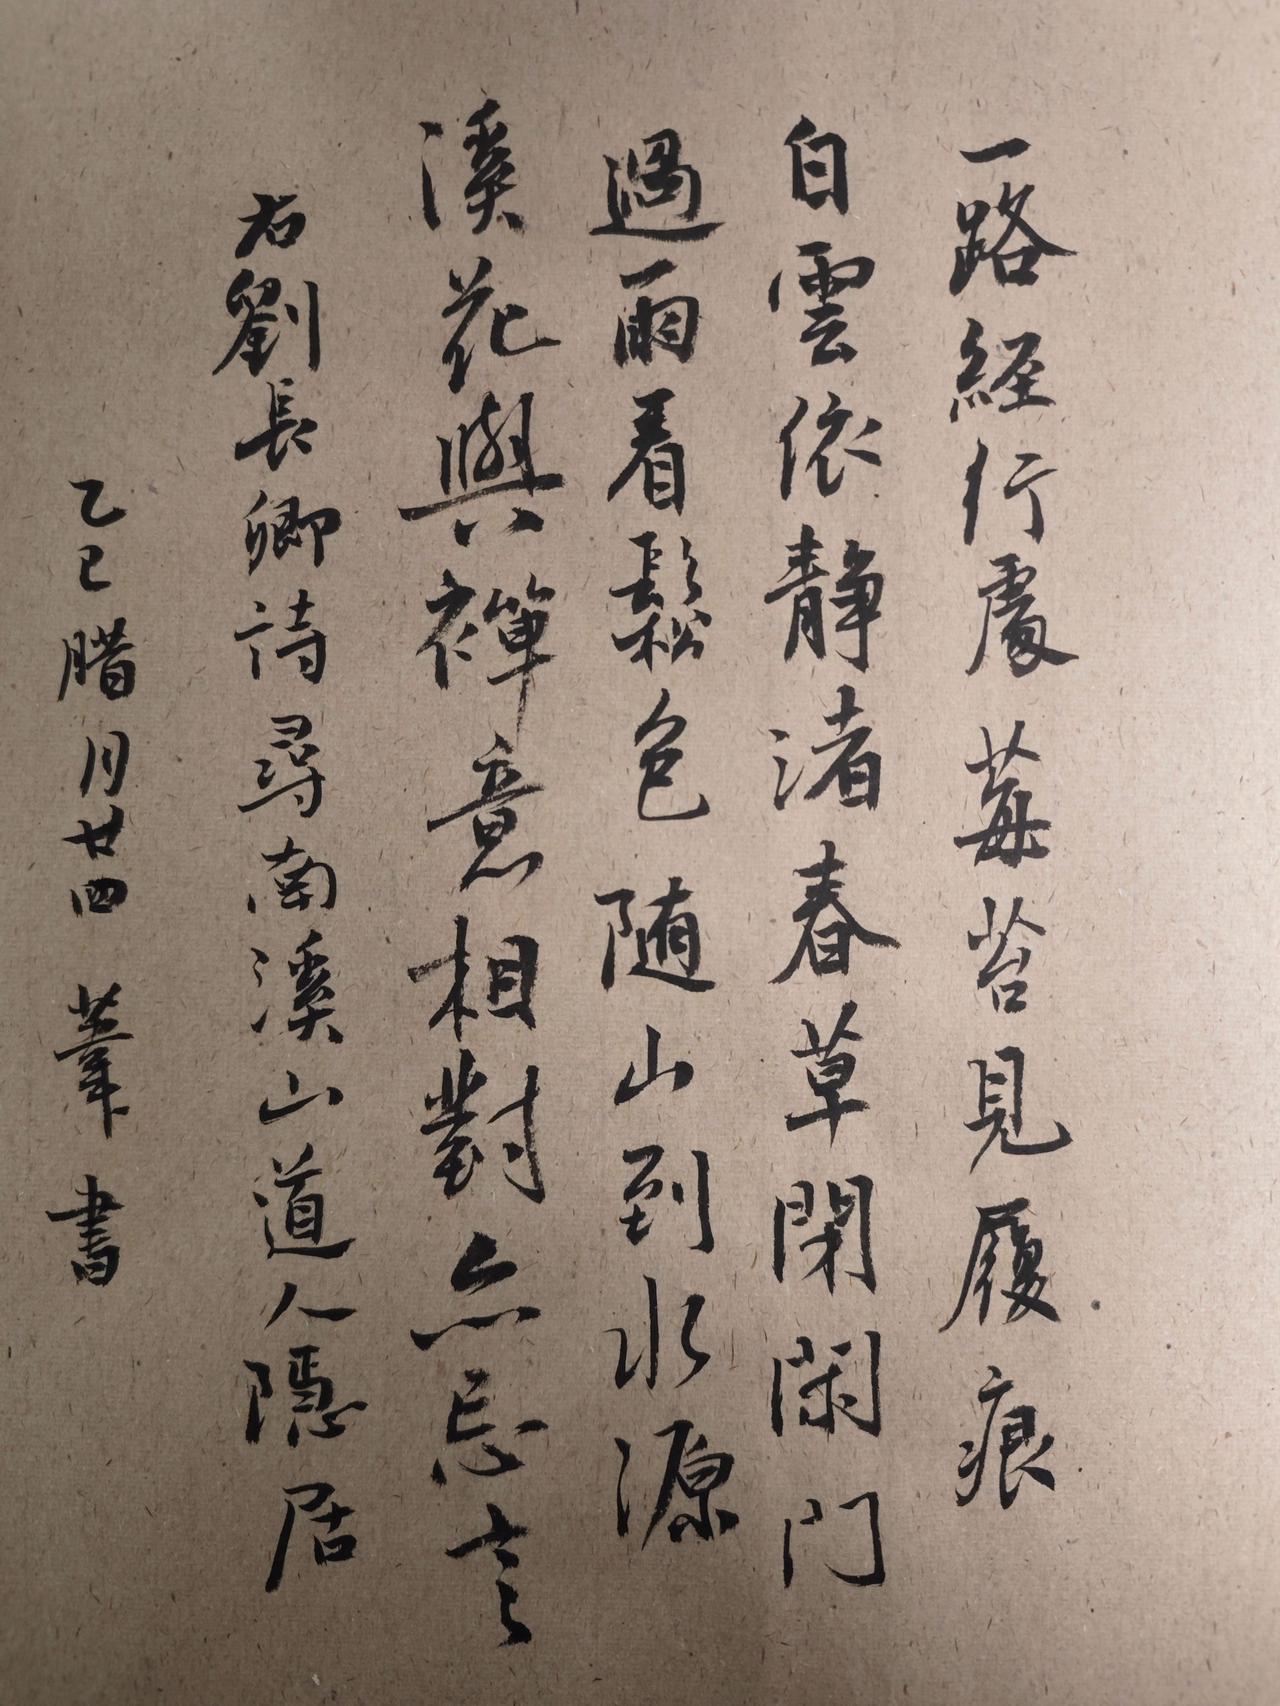 一路經行處莓苔見履痕
白雲依静渚春草閉閑門
過雨看鬆色随山到水源
溪花與禪意相對亦忘言
右劉長卿詩尋南溪山道人隱居
乙巳腊月廿四葦書